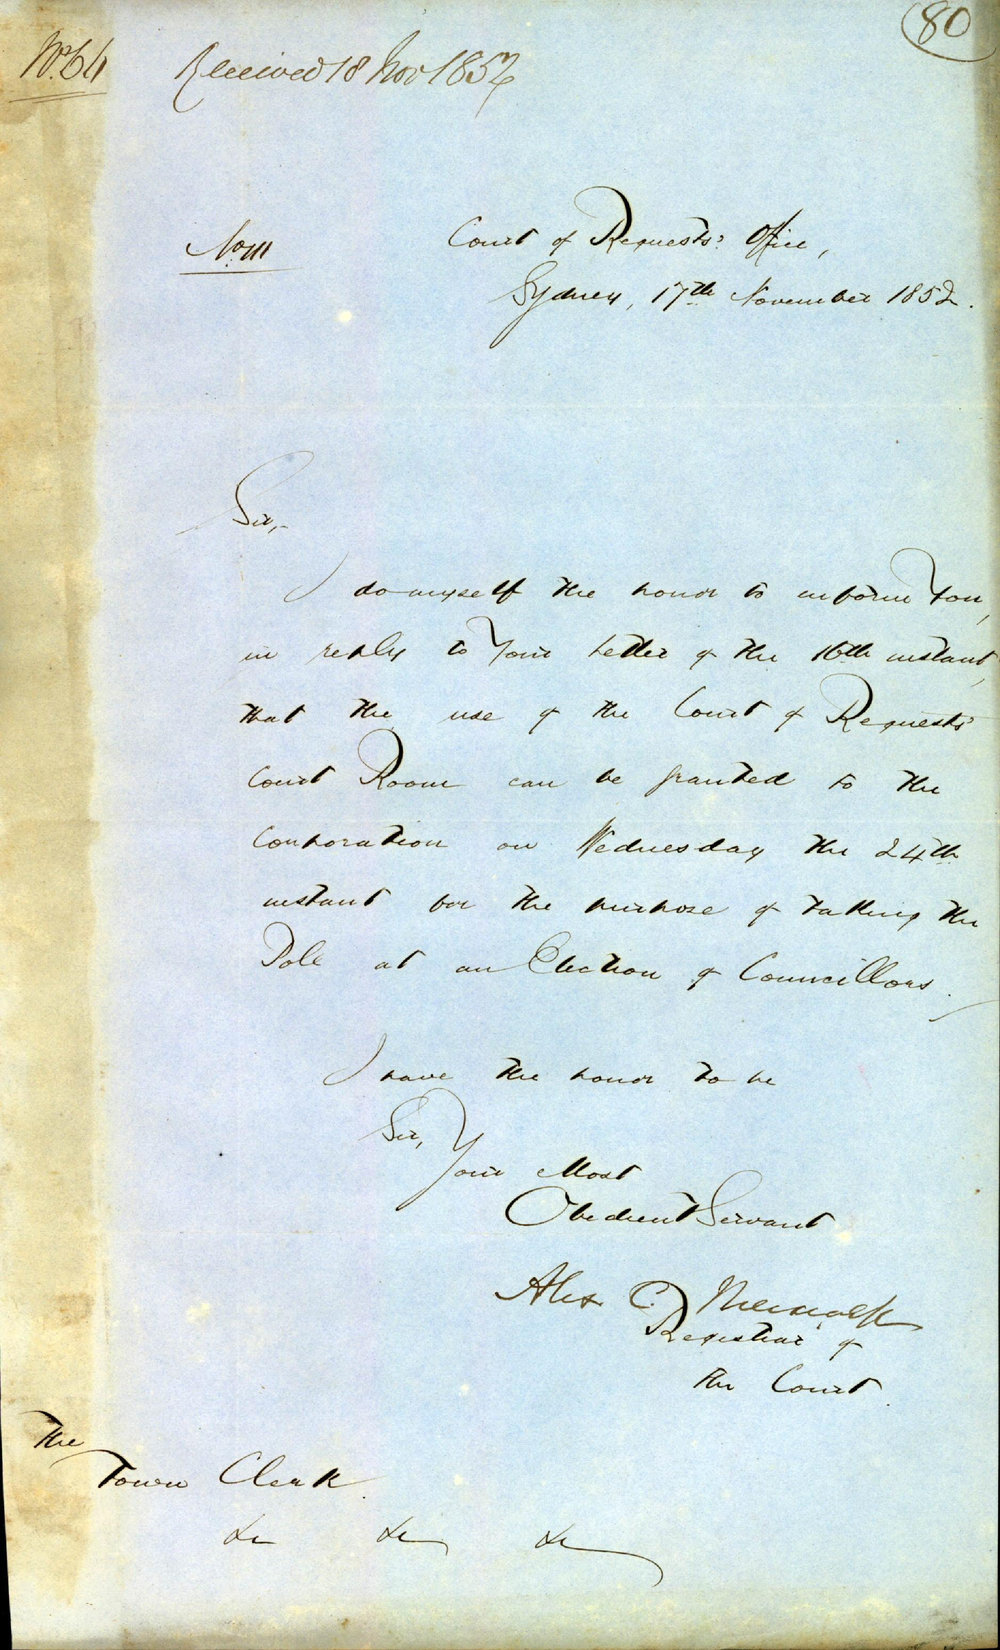 80
No. 64
Received 18 Nov 1852
No. 111
Court of Requests' Office,
Sydney, 17th November 1852.
Sir,
I do myself the honor to inform You,
in reply to Your Letter of the 16th instant,
that the use of the Court of Requests'
Court Room can be granted to the
Corporation on Wednesday the 24th
instant for the purpose of taking the
Pole at an Election of Councillors.
I have the honor to be
Sir,
Your Most
Obedient Servant
Alex. C.
Registrar of
the Court.
The
Town Clerk.
&c &c &c